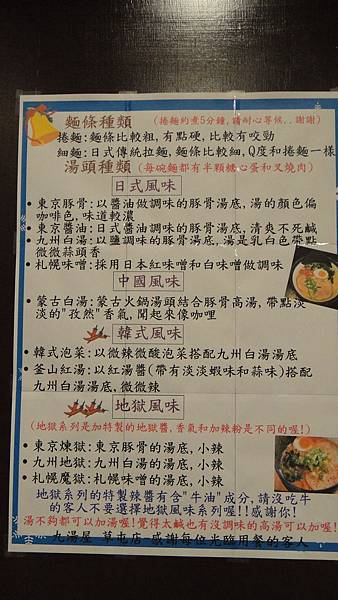 麵條種類 (捲麵約煮5分鐘,請耐心等候..謝謝)
捲麵:麵條比較粗,有點硬,比較有咬勁
細麵:日式傳統拉麵,麵條比較細,Q度和捲麵一樣
湯頭種類(每碗麵都有半顆糖心蛋和叉燒肉)
日式風味
東京豚骨:以醬油做調味的豚骨湯底,湯的顏色偏
咖啡色,味道較濃
東京醬油:日式醬油調味的豚骨湯底,清爽不死鹹
九州白湯:以鹽調味的豚骨湯底,湯是乳白色帶點
微微蒜頭香
札幌味噌:採用日本紅味噌和白味噌做調味
中國風味
蒙古白湯:蒙古火鍋湯頭結合豚骨高湯,帶點淡
淡的"孜然"香氣,聞起來像咖哩
韓式風味
韓式泡菜:以微辣微酸泡菜搭配九州白湯湯底
釜山紅湯:以紅湯醬(帶有淡淡蝦味和蒜味)搭配
九州白湯湯底,微微辣
地獄風味
(地獄系列是加特製的地獄醬,香氣和加辣粉是不同的喔!)
東京煉獄:東京豚骨的湯底,小辣
九州地獄:九州白湯的湯底,小辣
札幌魔獄:札幌味噌的湯底,小辣
地獄系列的特製辣醬有含"牛油"成分,請沒吃牛
的客人不要選擇地獄風味系列喔!!感謝你!
湯不夠都可以加湯喔!覺得太鹹也有沒調味的高湯可以加喔!
九湯屋 草屯店 感謝每位光臨用餐的客人